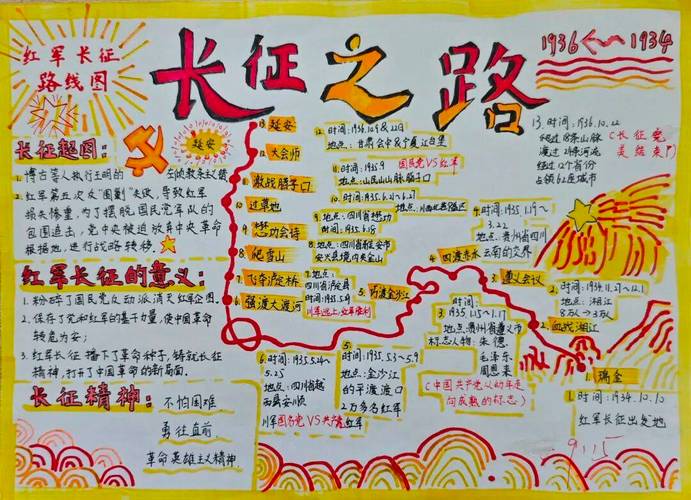 红军长征
路线图
长征之路
1936 ← 1934
长征起因:
1. 博古等人执行王明的"左"倾教条主义错
2. 红军第五次反"围剿"失败,导致红军
损失惨重,为了摆脱国民党军队的
包围追击,党中央被迫放弃中央革命
根据地,进行战略转移。
红军长征的意义:
1. 粉碎了国民党反动派消灭红军企图。
2. 保存了党和红军的基干力量,使中国革命
转危为安;
3. 红军长征播下了革命种子,铸就长征
精神,打开了中国革命的新局面。
长征精神:
不怕困难
勇往直前
革命英雄主义精神
延安
13 延安
12 大会师
11 激战腊子口
10 过草地
9 懋功会诗
8 爬雪山
7 飞夺泸定桥
6 强渡大渡河
5 巧渡金沙江
4 四渡赤水
3 遵义会议
2. 血战湘江
1. 瑞金
13. 时间:1936.10.22
(长征完
美结束!)
渡过24条河流
经过12个省份
占领62座城市
12. 时间:1936.10.9&22日
11. 时间:1935.9
国民党VS红军
10. 时间:1935.6.21~8.27
9. 时间:1935.6.18
7. 地点:
四川省泸定县
时间:1935.5.29
6. 时间:1935.5.24~
5.25
地点:四川省越
西属安顺
川军国民党VS共产党红军
5. 时间:1935.5.3~5.9
地点:金沙江
的平渡渡口
2万多名红军
4. 时间:1935.1.19~
3.22
地点:贵州省四川
云南的交界
3. 时间:1935.1.15~1.17
地点:贵州省遵义市
标志人物:朱德
毛泽东
周恩来
(中国共产党从幼年走
向成熟的标志)
2. 时间:1934.11.27~12.1
地点:湘江
8万→3万
1. 时间:1934.10.10
红军长征出发地
9.15